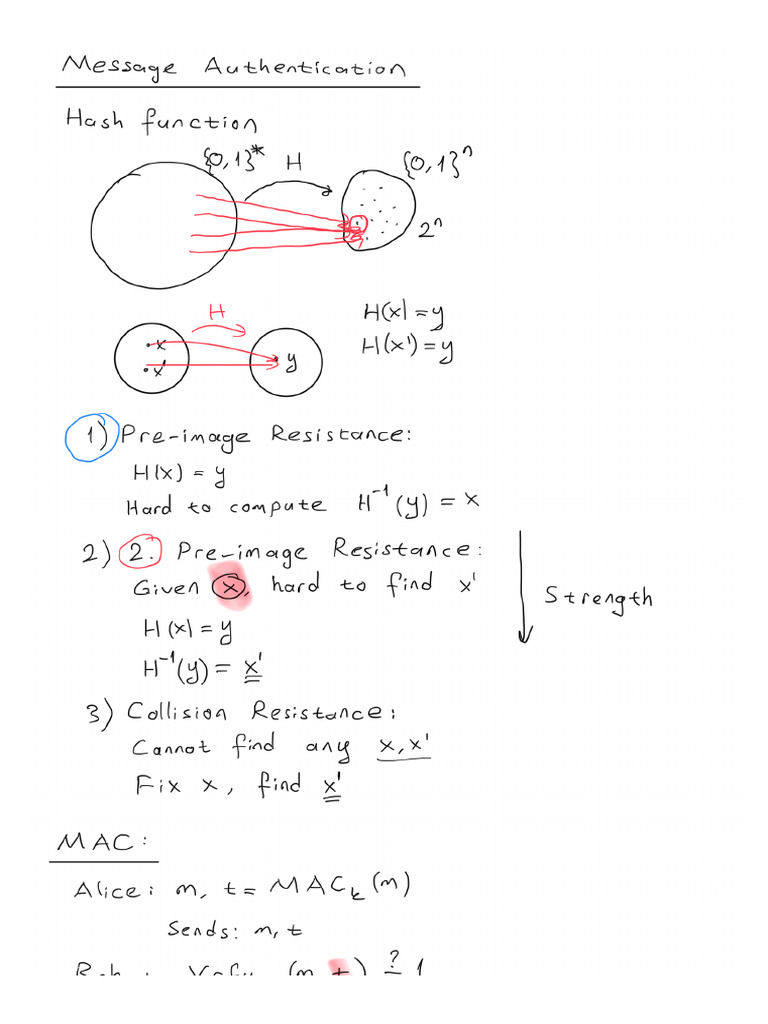 Message Authentication
Hash function
{0,1}* H {0,1}ⁿ
2ⁿ
H
H(x) = y
x y
H(x') = y
x'
1) Pre-image Resistance:
H(x) = y
Hard to compute H⁻¹(y) = x
2) 2. Pre-image Resistance:
Given x, hard to find x'
Strength
H(x) = y
H⁻¹(y) = x'
3) Collision Resistance:
Cannot find any x, x'
Fix x, find x'
MAC:
Alice: m, t = MACₖ(m)
Sends: m, t